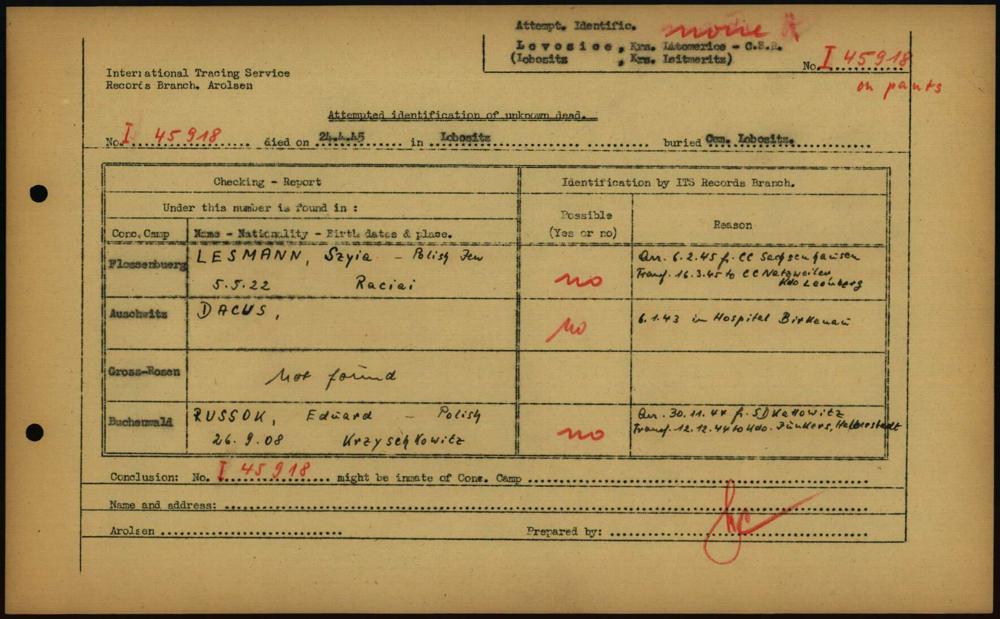 Attempt. Identific.
none
Lovosice, Krs. Litomerice - C.S.R.
(Lobositz , Krs. Leitmeritz)
No. I 45918
on pants
International Tracing Service
Records Branch, Arolsen
Attempted identification of unknown dead.
No. I 45918 died on 24.4.45 in Lobositz buried Cem. Lobositz.
Checking - Report
Identification by ITS Records Branch.
Under this number is found in :
Possible
(Yes or no)
Reason
Conc. Camp
Name - Nationality - Birth dates & place.
Flossenbuerg
LESMANN, Szyia - Polish Jew
5.5.22 Raciai
no
Arr. 6.2.45 f. CC Sachsenhausen
Transf. 16.3.45 to CC Natzweiler
Kdo Leonberg
Auschwitz
DACUS,
no
6.1.43 in Hospital Birkenau
Gross-Rosen
Not found
Buchenwald
RUSSOK, Eduard - Polish
26.9.08 Krzyschkowitz
no
Arr. 30.11.44 f. SD Kattowitz
Transf. 12.12.44 to Kdo. Junkers, Halberstadt
Conclusion: No. I 45918 might be inmate of Conc. Camp
Name and address:
Arolsen
Prepared by: